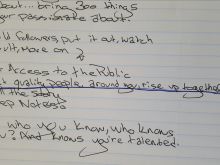 about... bring 300 things
your passionate about?
ld followers, put it out, watch
ult, move on
Access to the Public
t quality people, around you, rise up together
ll the story
eep Notes
who you know, who knows
u? And knows you're talented.